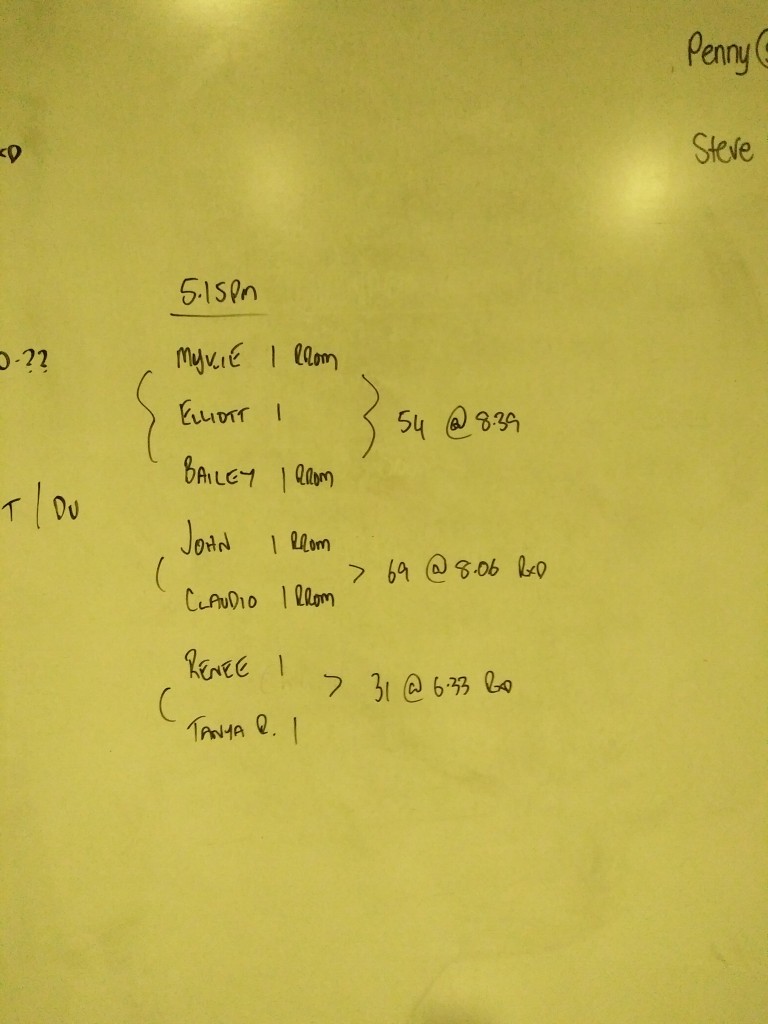 Penny
Steve
5.15pm
MYKIE 1 RROM
ELLIOTT 1
54 @ 8.39
BAILEY 1 RROM
T / DU
JOHN 1 RROM
69 @ 8.06 RXD
CLAUDIO 1 RROM
RENEE 1
31 @ 6.33 RXD
TANYA R. 1